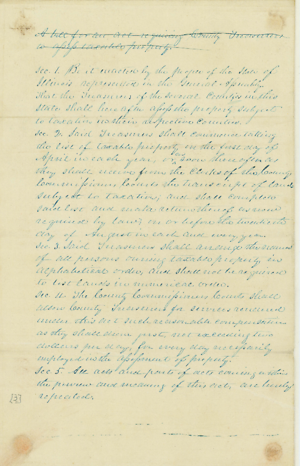 A bill for an act requiring County Treasurers
to assess taxable property
Sec. 1. Be it enacted by the people of the State of
Illinois represented in the General Assembly
that the Treasurers of the several Counties in this
State shall hereafter assess the property subject
to taxation in their respective Counties.
Sec. 2 Said Treasurers shall commence taking
the list of taxable property on the first day of
April in each year, or as soon thereafter as
they shall receive from the Clerks of the County
Commissioners Courts the transcripts of land
subject to taxation, and shall complete
said list and make return thereof as now
required by law, on or before the
day of August in each and every year
Sec. 3 Said Treasurers shall arrange the names
of all persons owning taxable property in
alphabetical order, and shall not be required
to list lands in numerical order.
Sec. 4. The County Commissioners Courts shall
allow County Treasurers for services rendered
under this act such reasonable compensation
as they shall deem just, not exceeding
dollars per day for every day necessarily
employed in the assessment of property.
Sec. 5. All acts and parts of acts coming within
the purview and meaning of this act, are hereby
repealed.